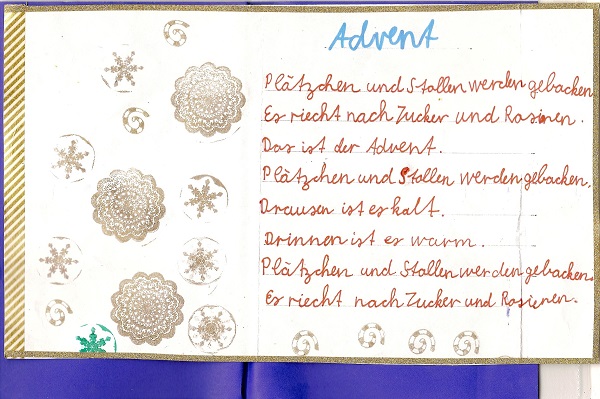 Advent
Plätzchen und Stollen werden gebacken
Es riecht nach Zucker und Rosinen.
Das ist der Advent.
Plätzchen und Stollen werden gebacken.
Drausen ist es kalt.
Drinnen ist es warm.
Plätzchen und Stollen werden gebacken.
Es riecht nach Zucker und Rosienen.